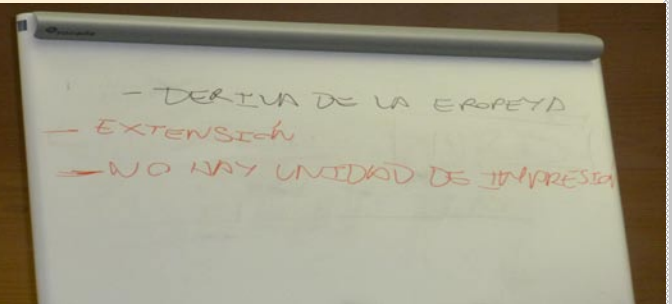 - DERIVA DE LA EPOPEYA
- EXTENSIÓN
- NO HAY UNIDAD DE IMPRESIÓN